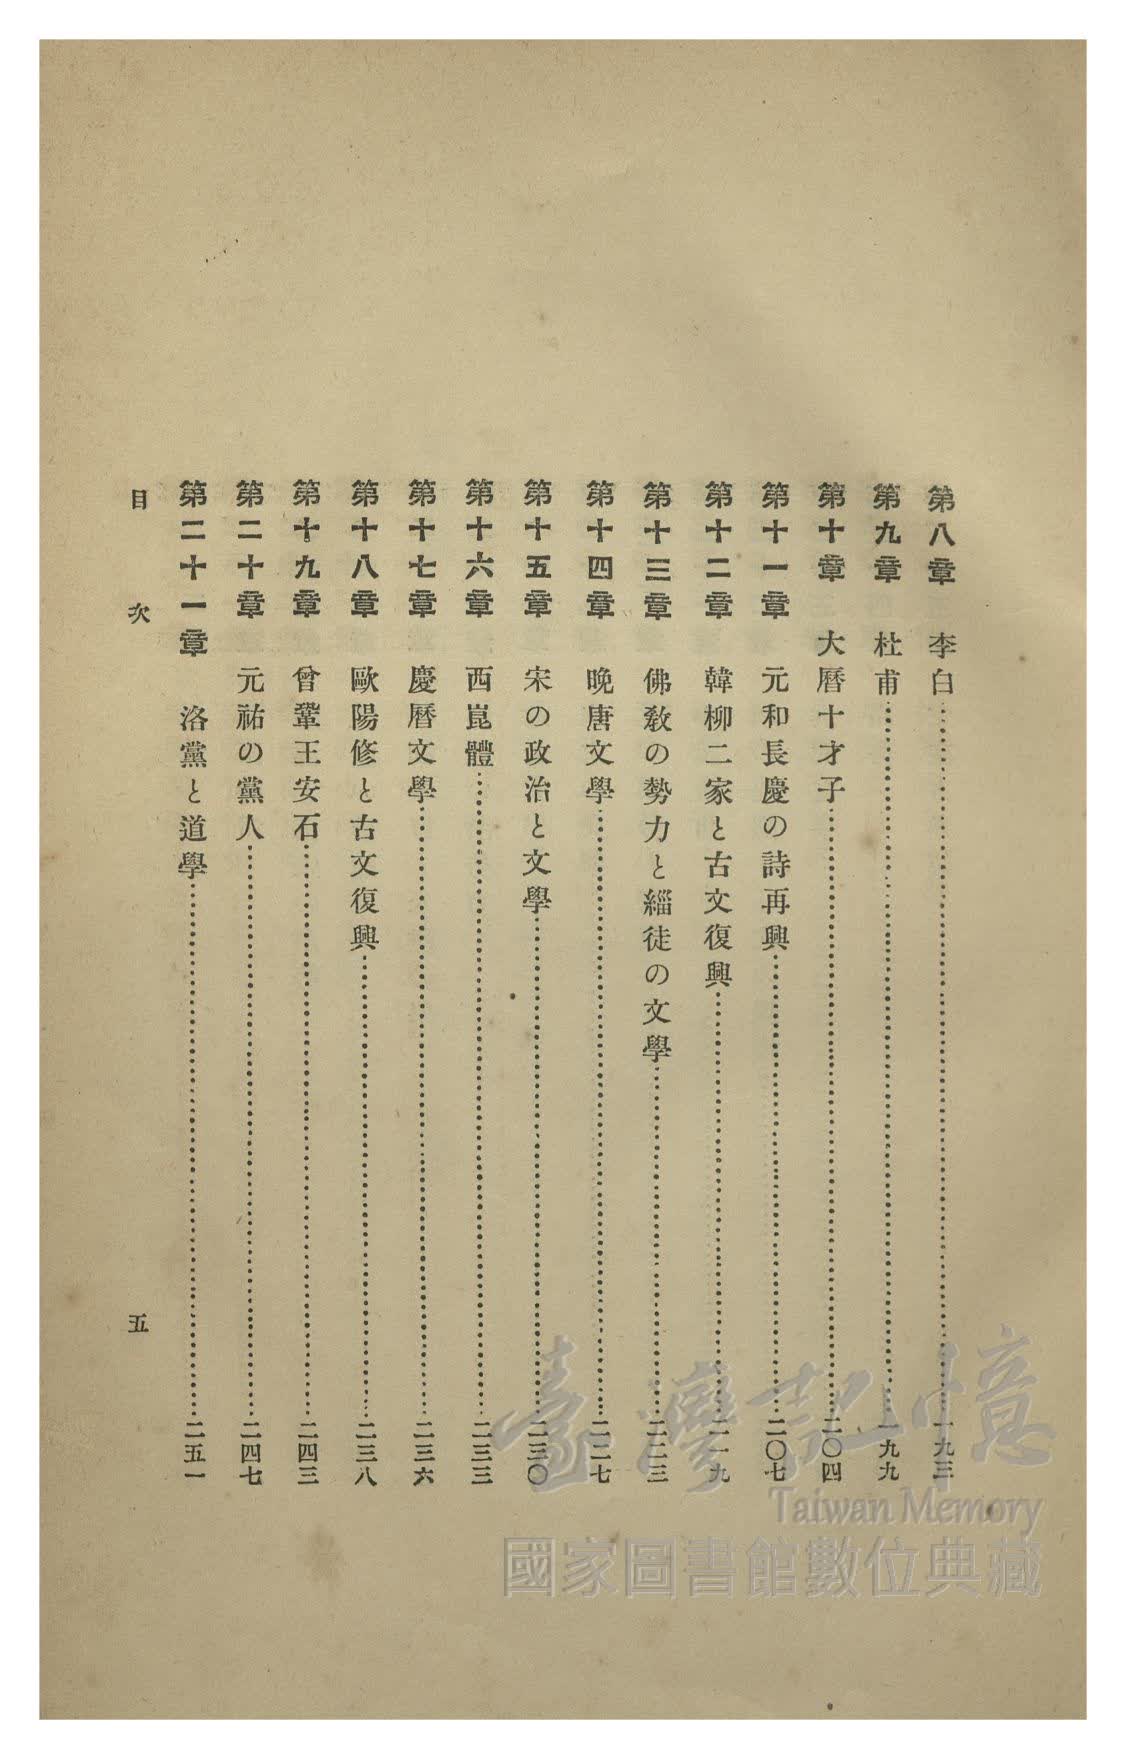 第八章　李白……一九三
第九章　杜甫……一九九
第十章　大曆十才子……二〇四
第十一章　元和長慶の詩再興……二〇七
第十二章　韓柳二家と古文復興……二一九
第十三章　佛敎の勢力と緇徒の文學……二二三
第十四章　晩唐文學……二二七
第十五章　宋の政治と文學……二三〇
第十六章　西崑體……二三三
第十七章　慶曆文學……二三六
第十八章　歐陽修と古文復興……二三八
第十九章　曾鞏王安石……二四三
第二十章　元祐の黨人……二四七
第二十一章　洛黨と道學……二五一
目　次　五
臺灣記憶
Taiwan Memory
國家圖書館數位典藏